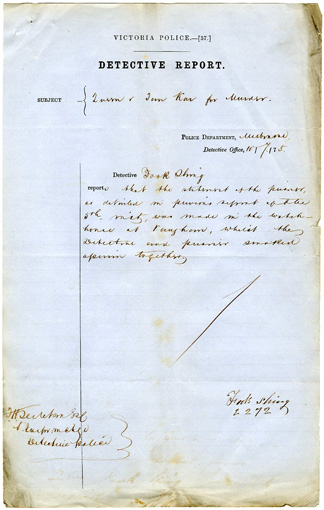 VICTORIA POLICE.—[57.]
DETECTIVE REPORT.
SUBJECT
Queen v Tom Kar for Murder.
POLICE DEPARTMENT, Melbourne
Detective Office,
Detective Fook Shing
reports that the statement of the prisoner,
as detailed in previous report of the
was made in the watch-
house at Vaughan, whilst the
Detective and prisoner smoked
opium together
Fook Shing
2272
Detective Police